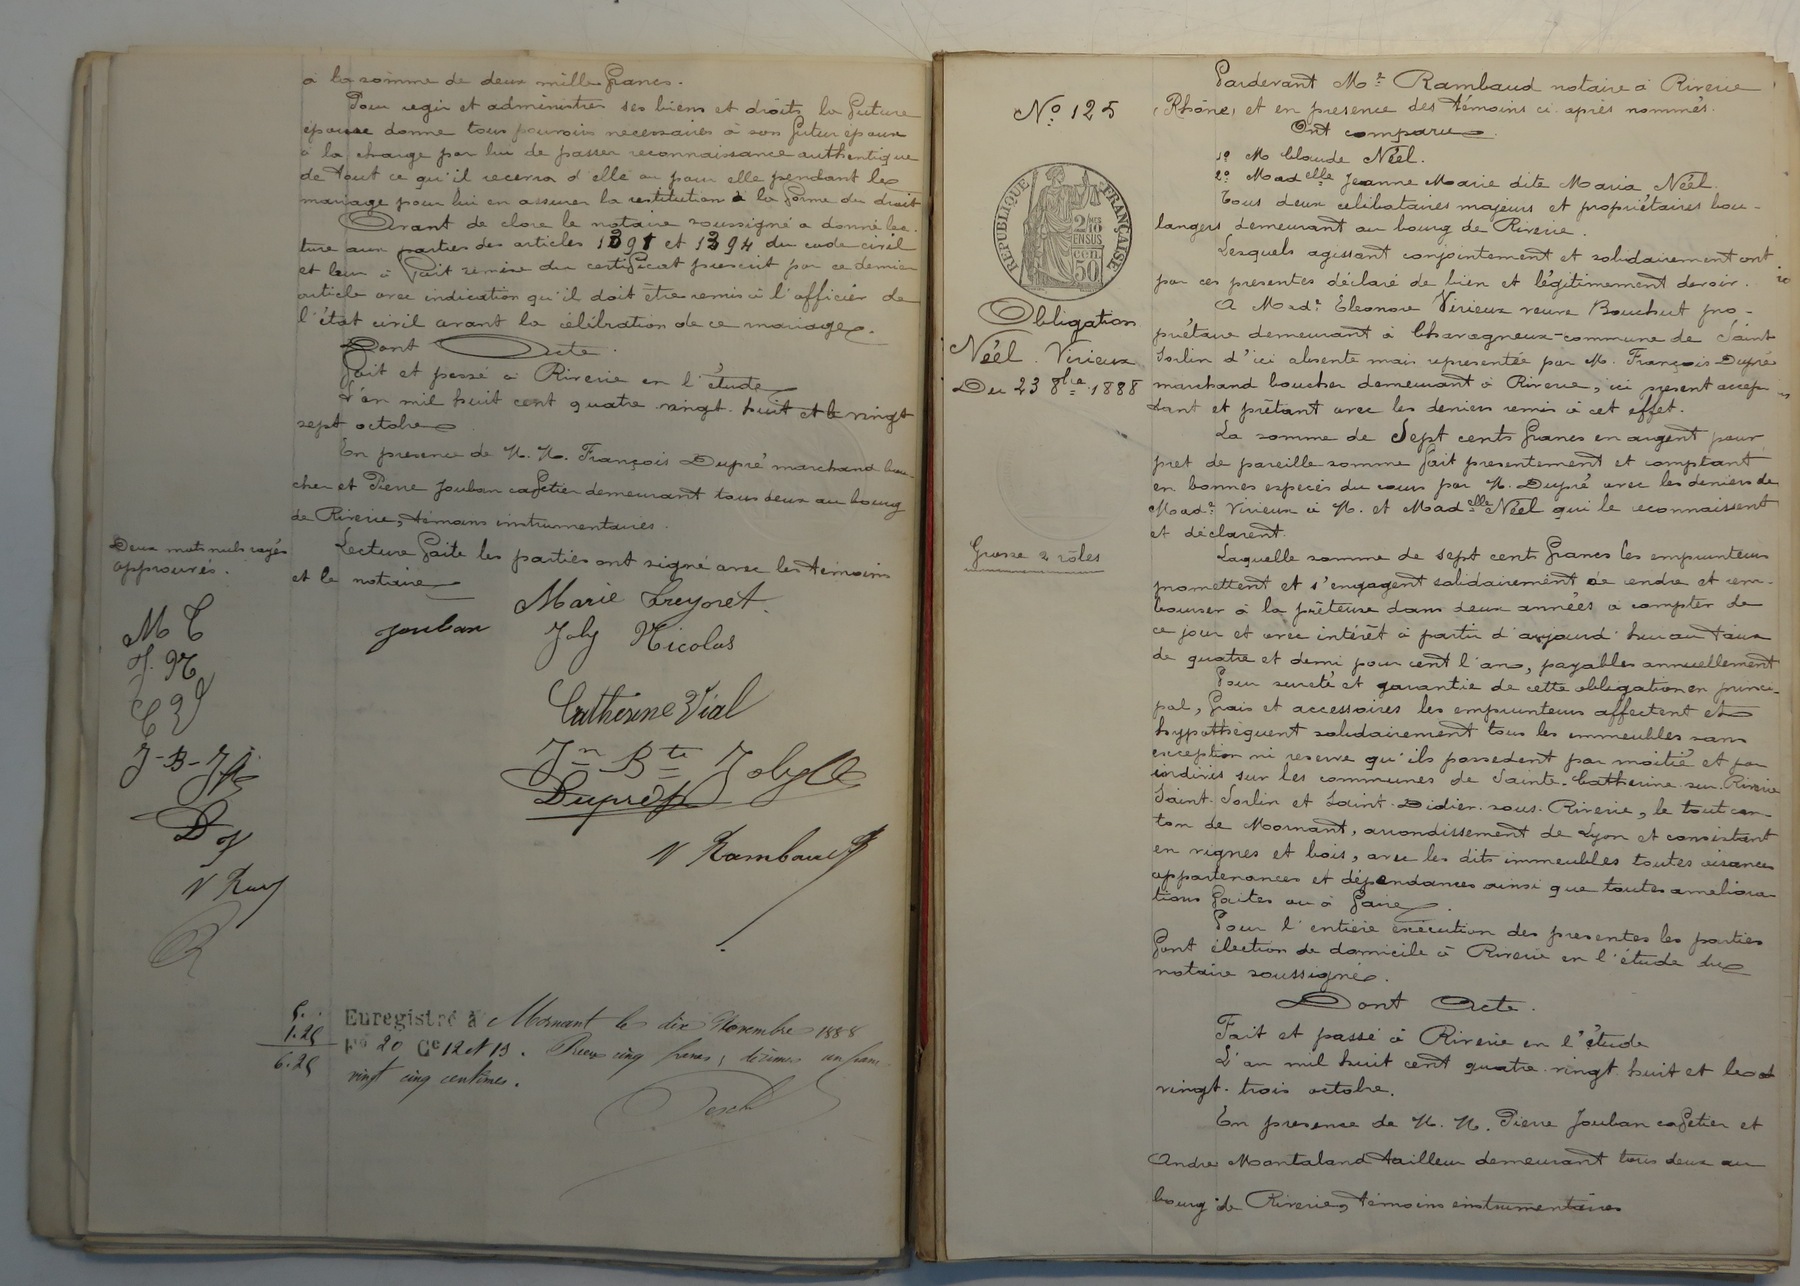 à la somme de deux mille francs.
Pour regir et administrer ses biens et droits, la future
épouse donne tous pouvoirs necessaires à son futur époux
à la charge par lui de passer reconnaissance authentique
de tout ce qu'il recevra d'elle ou pour elle pendant le
mariage pour lui en assurer la restitution à la forme du droit
Avant de clore le notaire soussigné a donné lec-
ture aux parties des articles 1391 et 1394 du code civil
et leur a fait remise du certificat prescrit par ce dernier
article avec indication qu'il doit être remis à l'officier de
l'état civil avant la célébration de ce mariage.
Dont Acte.
Fait et passé à Riverie en l'étude
L'an mil huit cent quatre vingt huit et le vingt
sept octobre
En presence de M. M. François Dupré marchand bou-
cher et Pierre Jouban cafetier demeurant tous deux au bourg
de Riverie, témoins instrumentaires.
Lecture faite les parties ont signé avec les témoins
et le notaire
Deux mots nuls rayés
approuvés.
Marie Treynet.
Jouban
Joly Nicolas
Catherine Vial
Jn Bte Joly
Dupré
V Rambaud
M T
J. N
C V
J-B-J
D
V Ram
R
5. .
1.25
6.25
Enregistré à Mornant le dix Novembre 1888
Fo 20 Ce 12 N 13. Reçu cinq francs, décimes un franc
vingt cinq centimes.
No 125
RÉPUBLIQUE FRANÇAISE
2/10
EN SUS
50 cen
Obligation
Néel. Virieux
Du 23 8bre 1888
Grosse 2 rôles
Pardevant Me Rambaud notaire à Riverie
(Rhône) et en presence des témoins ci après nommés.
Ont comparu
1o M Claude Néel.
2o Madelle Jeanne Marie dite Maria Néel.
Tous deux célibataires majeurs et propriétaires bou-
langers demeurant au bourg de Riverie.
Lesquels agissant conjointement et solidairement ont
par ces presentes déclaré de bien et légitimement devoir.
A Made Eleonore Virieux veuve Bouchut pro-
priétaire demeurant à Charagneux-commune de Saint
Sorlin d'ici absente mais representée par M. François Dupré
marchand boucher demeurant à Riverie, ici present accep
tant et prêtant avec les deniers remis à cet effet.
La somme de Sept cents francs en argent pour
pret de pareille somme fait presentement et comptant
en bonnes especes du cours par M. Dupré avec les deniers de
Made Virieux à M. et Madelle Néel qui le reconnaissent
et déclarent.
Laquelle somme de sept cents francs les emprunteurs
promettent et s'engagent solidairement de rendre et rem-
bourser à la prêteuse dans deux années à compter de
ce jour et avec intérêt à partir d'aujourd'hui au taux
de quatre et demi pour cent l'an, payables annuellement
Pour sureté et garantie de cette obligation en princi-
pal, frais et accessoires les emprunteurs affectent et
hypothèquent solidairement tous les immeubles sans
exception ni reserve qu'ils possedent par moitié et par
indivis sur les communes de Sainte-Catherine-sur-Riverie
Saint-Sorlin et Saint-Didier-sous-Riverie, le tout can
ton de Mornant, arrondissement de Lyon et consistant
en vignes et bois, avec les dits immeubles toutes aisances
appartenances et dépendances ainsi que toutes ameliora-
tions faites ou à faire.
Pour l'entière exécution des presentes les parties
font élection de domicile à Riverie en l'étude du
notaire soussigné.
Dont Acte.
Fait et passé à Riverie en l'étude
L'an mil huit cent quatre vingt huit et le
vingt-trois octobre.
En presence de M. M. Pierre Jouban cafetier et
André Montaland tailleur demeurant tous deux au
bourg de Riverie, témoins instrumentaires